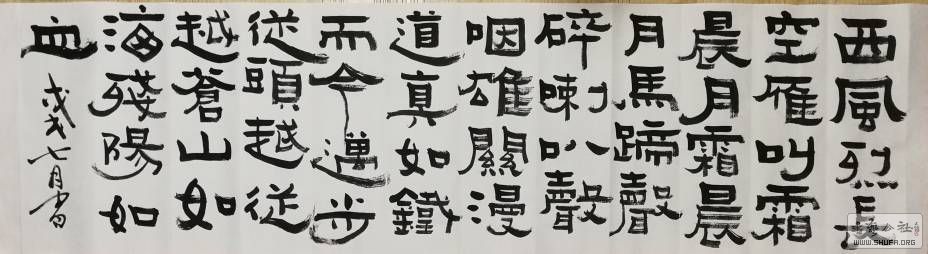 西風烈長
空雁叫霜
晨月霜晨
月馬蹄聲
碎喇叭聲
咽雄關漫
道真如鐵
而今邁步
從頭越從
越蒼山如
海殘陽如
血
戊戌七月書
WWW.SHUFA.ORG